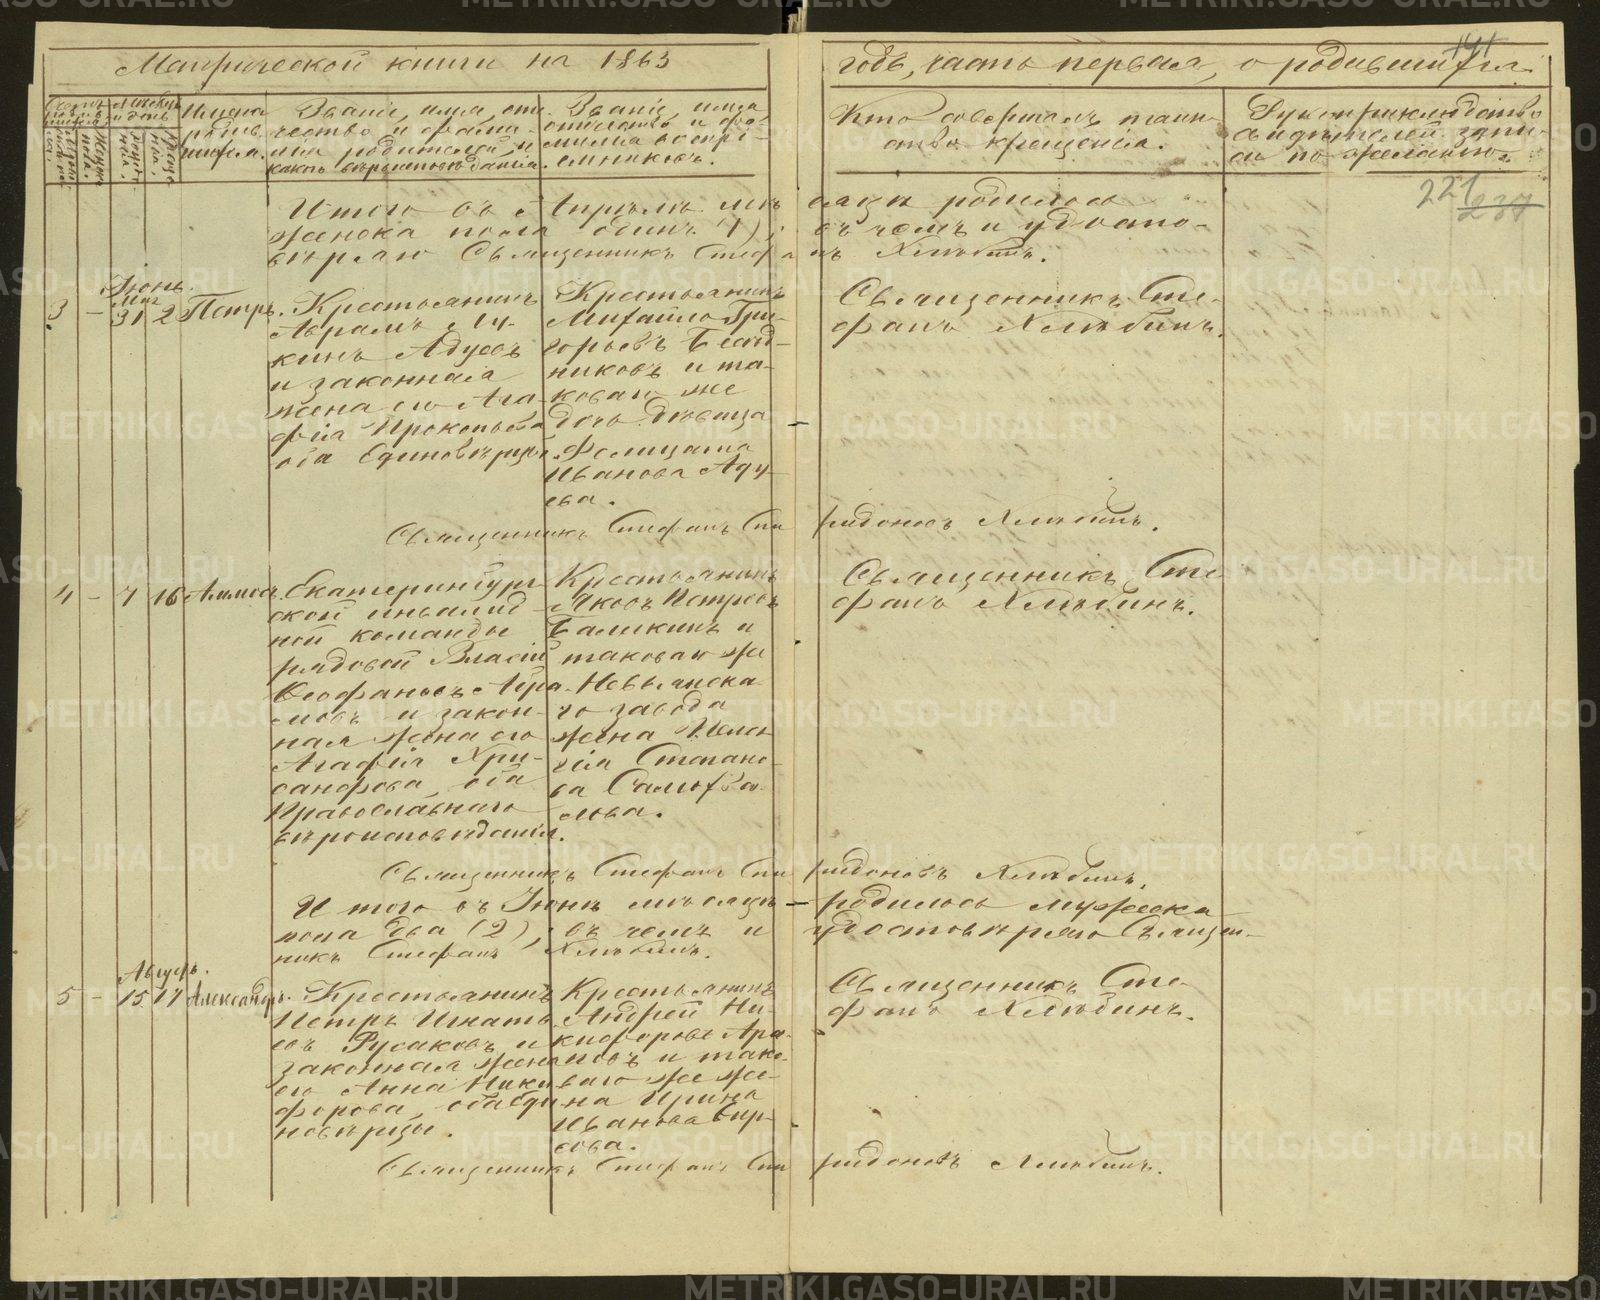 Метрической книги на 1863
годъ, часть первая, о родившихся.
141
221
237
Имена родив-
шихся.
Званіе, имя, оте-
чество и фами-
лія родителей, и
какого вѣроисповѣданія.
Званіе, имя
отчество и фа-
милія воспрі-
емниковъ.
Кто совершалъ таин-
ство крещенія.
Рукоприкладство
свидѣтелей записи
по желанію.
Итого въ Апрѣлѣ мѣсяцѣ родилось
женска пола одинъ 1), въ чемъ и удосто-
вѣряю Священникъ Стефанъ Хлѣбинъ.
Іюнь.
Мая
3 – 31 2 Петръ.
Крестьянинъ
Аврамъ Лу-
кинъ Адуевъ
и законная
жена его Ага-
фія Прокопьева
оба Единовѣрцы.
Крестьянинъ
Михайло Гри-
горьевъ
никовъ и та-
коваго же
дочь дѣвица
Фелицата
Иванова Аду-
ева.
Священникъ Сте-
фанъ Хлѣбинъ.
Священникъ Стефанъ Спиридоновъ Хлѣбинъ.
4 – 7 16
Екатеринбург-
ской инвалид-
ной команды
рядовой Власій
Феофановъ
и закон-
ная жена его
Агафія Хри-
санфова, оба
Православнаго
вѣроисповѣданія.
Крестьянинъ
Яковъ Петровъ
Галикинъ и
таковая же
Невьянска-
го завода
жена Пела-
гія Степано-
ва
Священникъ Сте-
фанъ Хлѣбинъ.
Священникъ Стефанъ Спиридоновъ Хлѣбинъ.
Итого въ Іюнѣ мѣсяцѣ – родилось мужеска
пола два (2), въ чемъ и удостовѣряю Священ-
никъ Стефанъ Хлѣбинъ.
Августъ.
5 – 15 17 Александръ.
Крестьянинъ
Петръ Игнать-
евъ Русаковъ и
законная жена
его Анна Ники-
форова, оба Еди-
новѣрцы.
Крестьянинъ
Андрей Ни-
кифоровъ Ара-
повъ и тако-
ваго же же-
на Ирина
Иванова
Священникъ Сте-
фанъ Хлѣбинъ.
Священникъ Стефанъ Спиридоновъ Хлѣбинъ.
METRIKI.GASO-URAL.RU